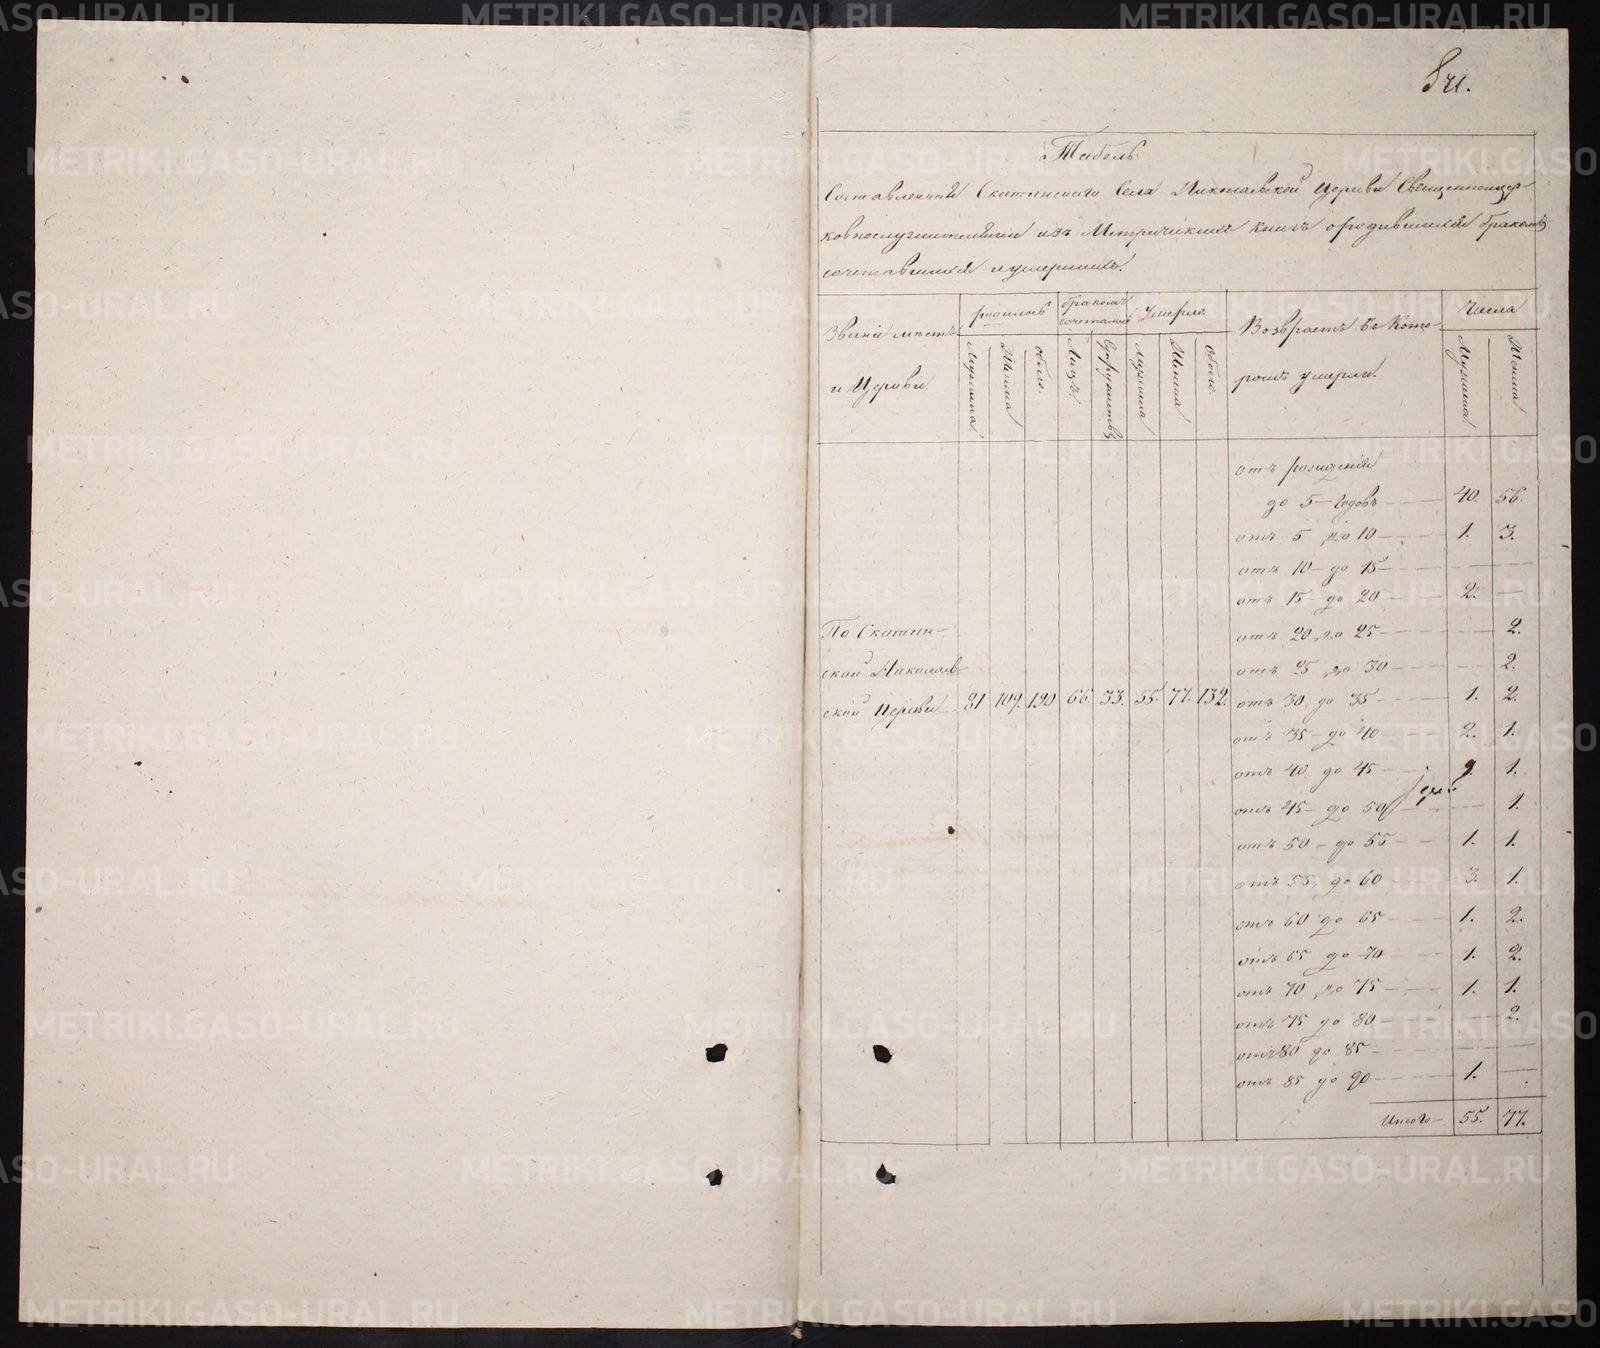 841.
Табель
Составленная Скатинскаго Села Николаевской Церкви Священноцер-
ковнослужителями изъ Метрическихъ книгъ о родившихся бракомъ
сочетавшихся и умершихъ.
Званіе мѣстъ и Церкви.
родилось
бракомъ сочеталось
Умерло
Возврастъ въ кото-
ромъ умерли.
Числа
Мужеска
Женска
обоего.
Лицъ.
Супружествъ
мужеска
Женска
Обоего.
Мужеска
Женска
отъ рожденія
до 5 годовъ 40. 56.
отъ 5 до 10 1. 3.
отъ 10 до 15
отъ 15 до 20 2.
отъ 20 до 25 2.
отъ 25 до 30 2.
По Скатин-
ской Николаев-
ской Церкви 81 109. 190 66. 33. 55. 77. 132.
отъ 30 до 35 1. 2.
отъ 35 до 40 2. 1.
отъ 40 до 45 1.
отъ 45 до 50 1.
отъ 50 до 55 1. 1.
отъ 55 до 60 3. 1.
отъ 60 до 65 1. 2.
отъ 65 до 70 1. 2.
отъ 70 до 75 1. 1.
отъ 75 до 80 2.
отъ 80 до 85
отъ 85 до 90 1.
Итого 55. 77.
METRIKI.GASO-URAL.RU